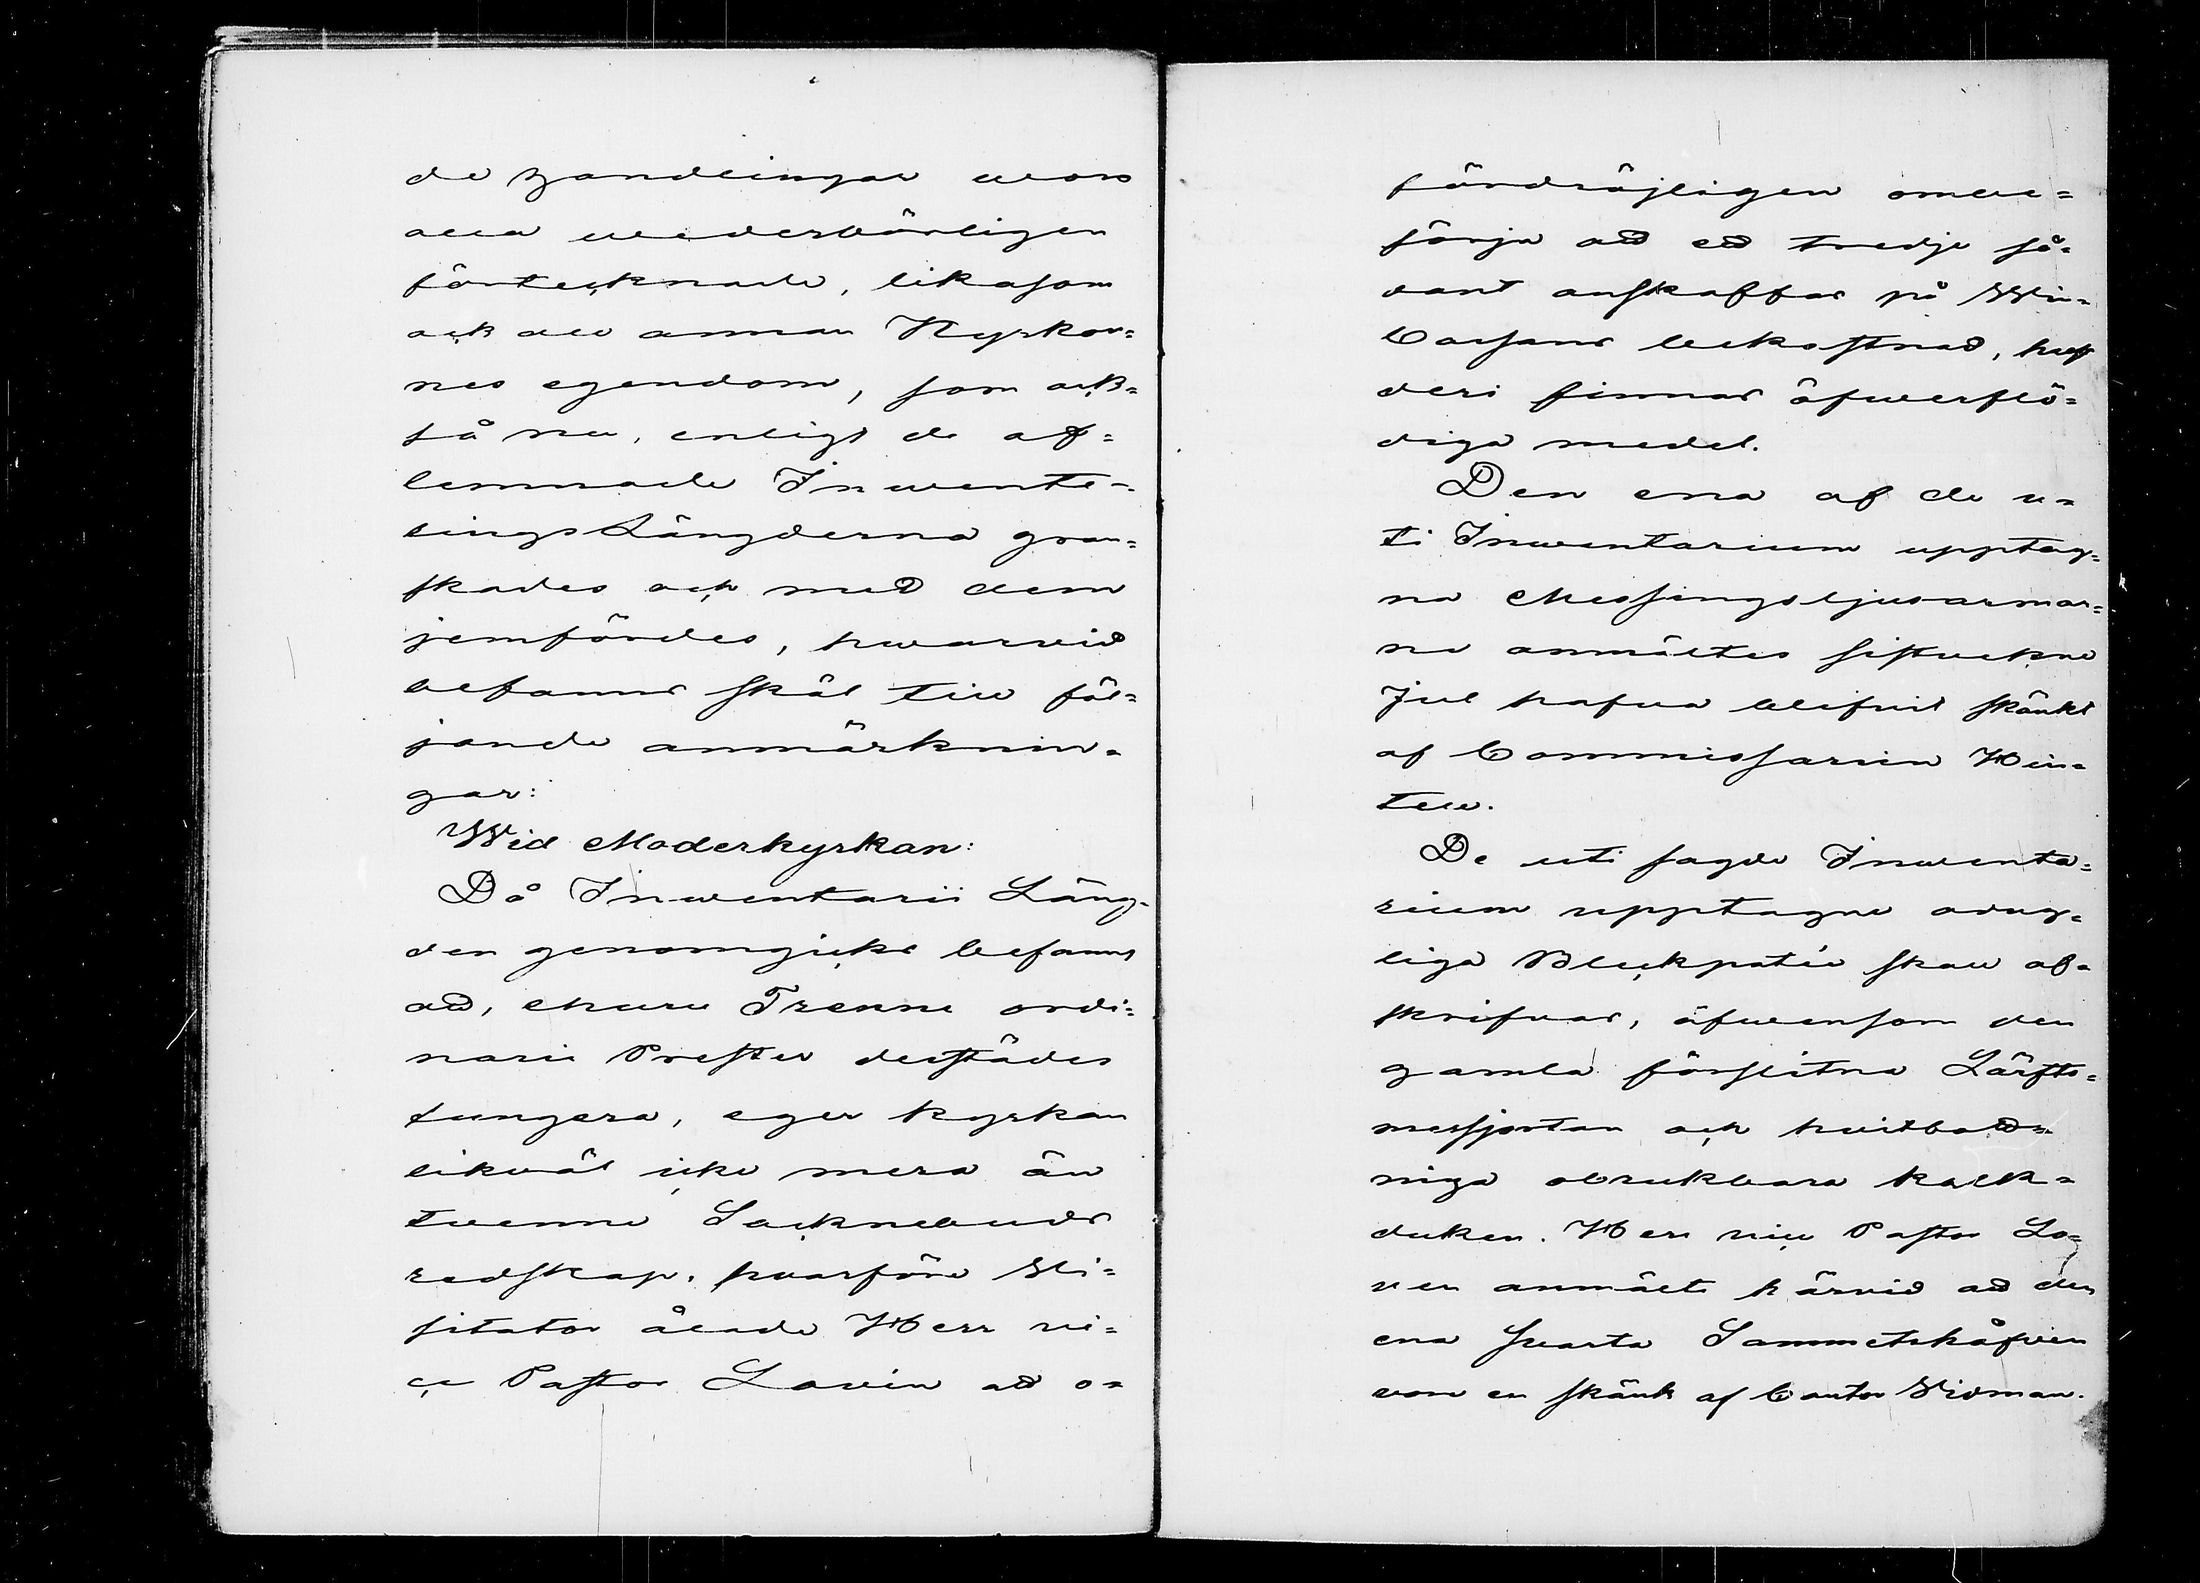 de Handlingar woro
alla wederbörligen
förtecknade, likasom
ock all annan Kyrkor=
nes egendom, som ock=
så nu, enligt de af=
lemnade Inwente=
ringsLängderna gran=
skades och med dem
jemfördes, hwarvid
befanns skäl till föl=
jande anmärknin=
gar:
Wid Moderkyrkan:
Då Inwentarii Läng=
den genomgicks befanns
att, ehuru Trenne ordi=
narie Prester derstädes
fungera, eger kyrkan
likväl icke mera än
twenne Socknebuds
redskap, hvarföre Vi=
sitator ålade Herr vi=
ce Pastor Lovin att o=
fördröjligen ombe=
sörja att ett tredje så=
dant anskaffas på Win=
Cassans bekostnad, helst
deri finnas öfwerflö=
diga medel.
Den ena af de u=
ti Inwentarium upptag=
na Messingsljusarmar=
ne anmältes sistvekne
Jul hafva blifvit skänkt
af Commissarien Hin=
tell.
De uti sagde Inwenta=
rium upptagne odug=
liga Bleckpatén skall af=
skrifvas, äfwensom den
gamla förslitna Lärfts=
messjortan och hvitbott=
niga obrukbara kalk=
duken. Herr vice Pastor Lo=
ven anmälte härvid att den
ena svarta Sammetshåfven
vore en skänk af Cantor Widman.